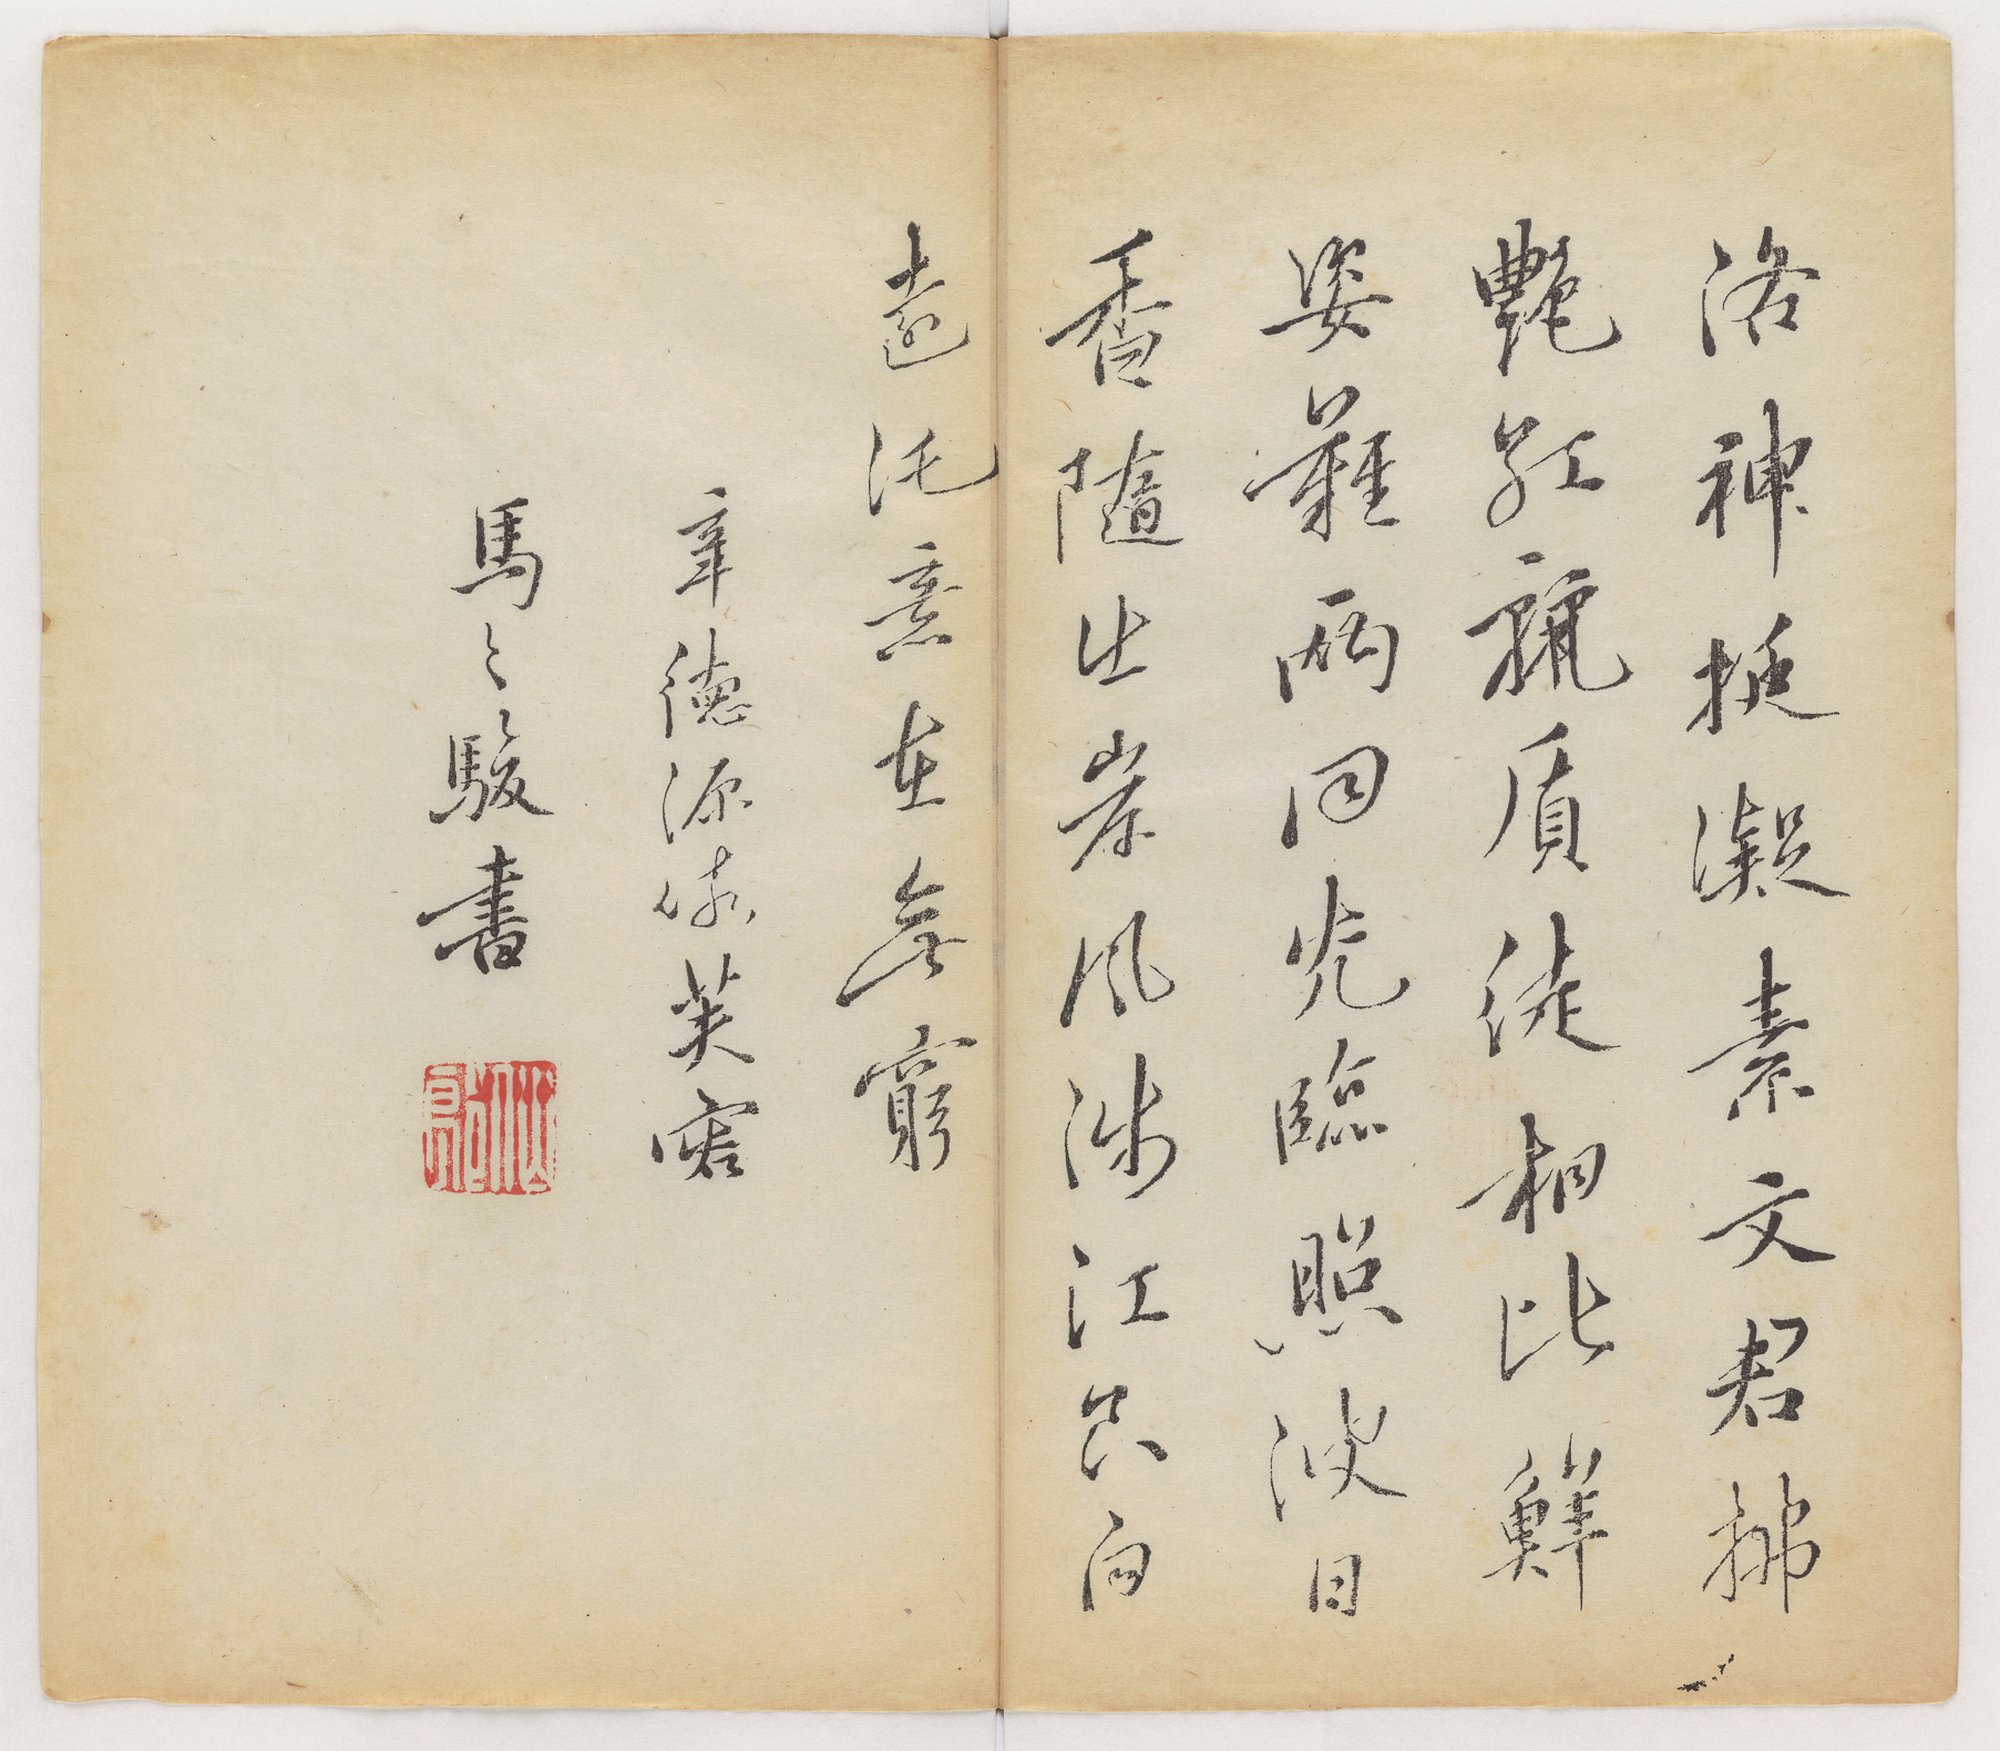 洛神挺凝素文君拂
艷紅麗質徒相比鮮
姿難兩同光臨照波日
香隨出岸風涉江只自
遠託意在無窮
辛德源詠芙蓉
馬之駿書